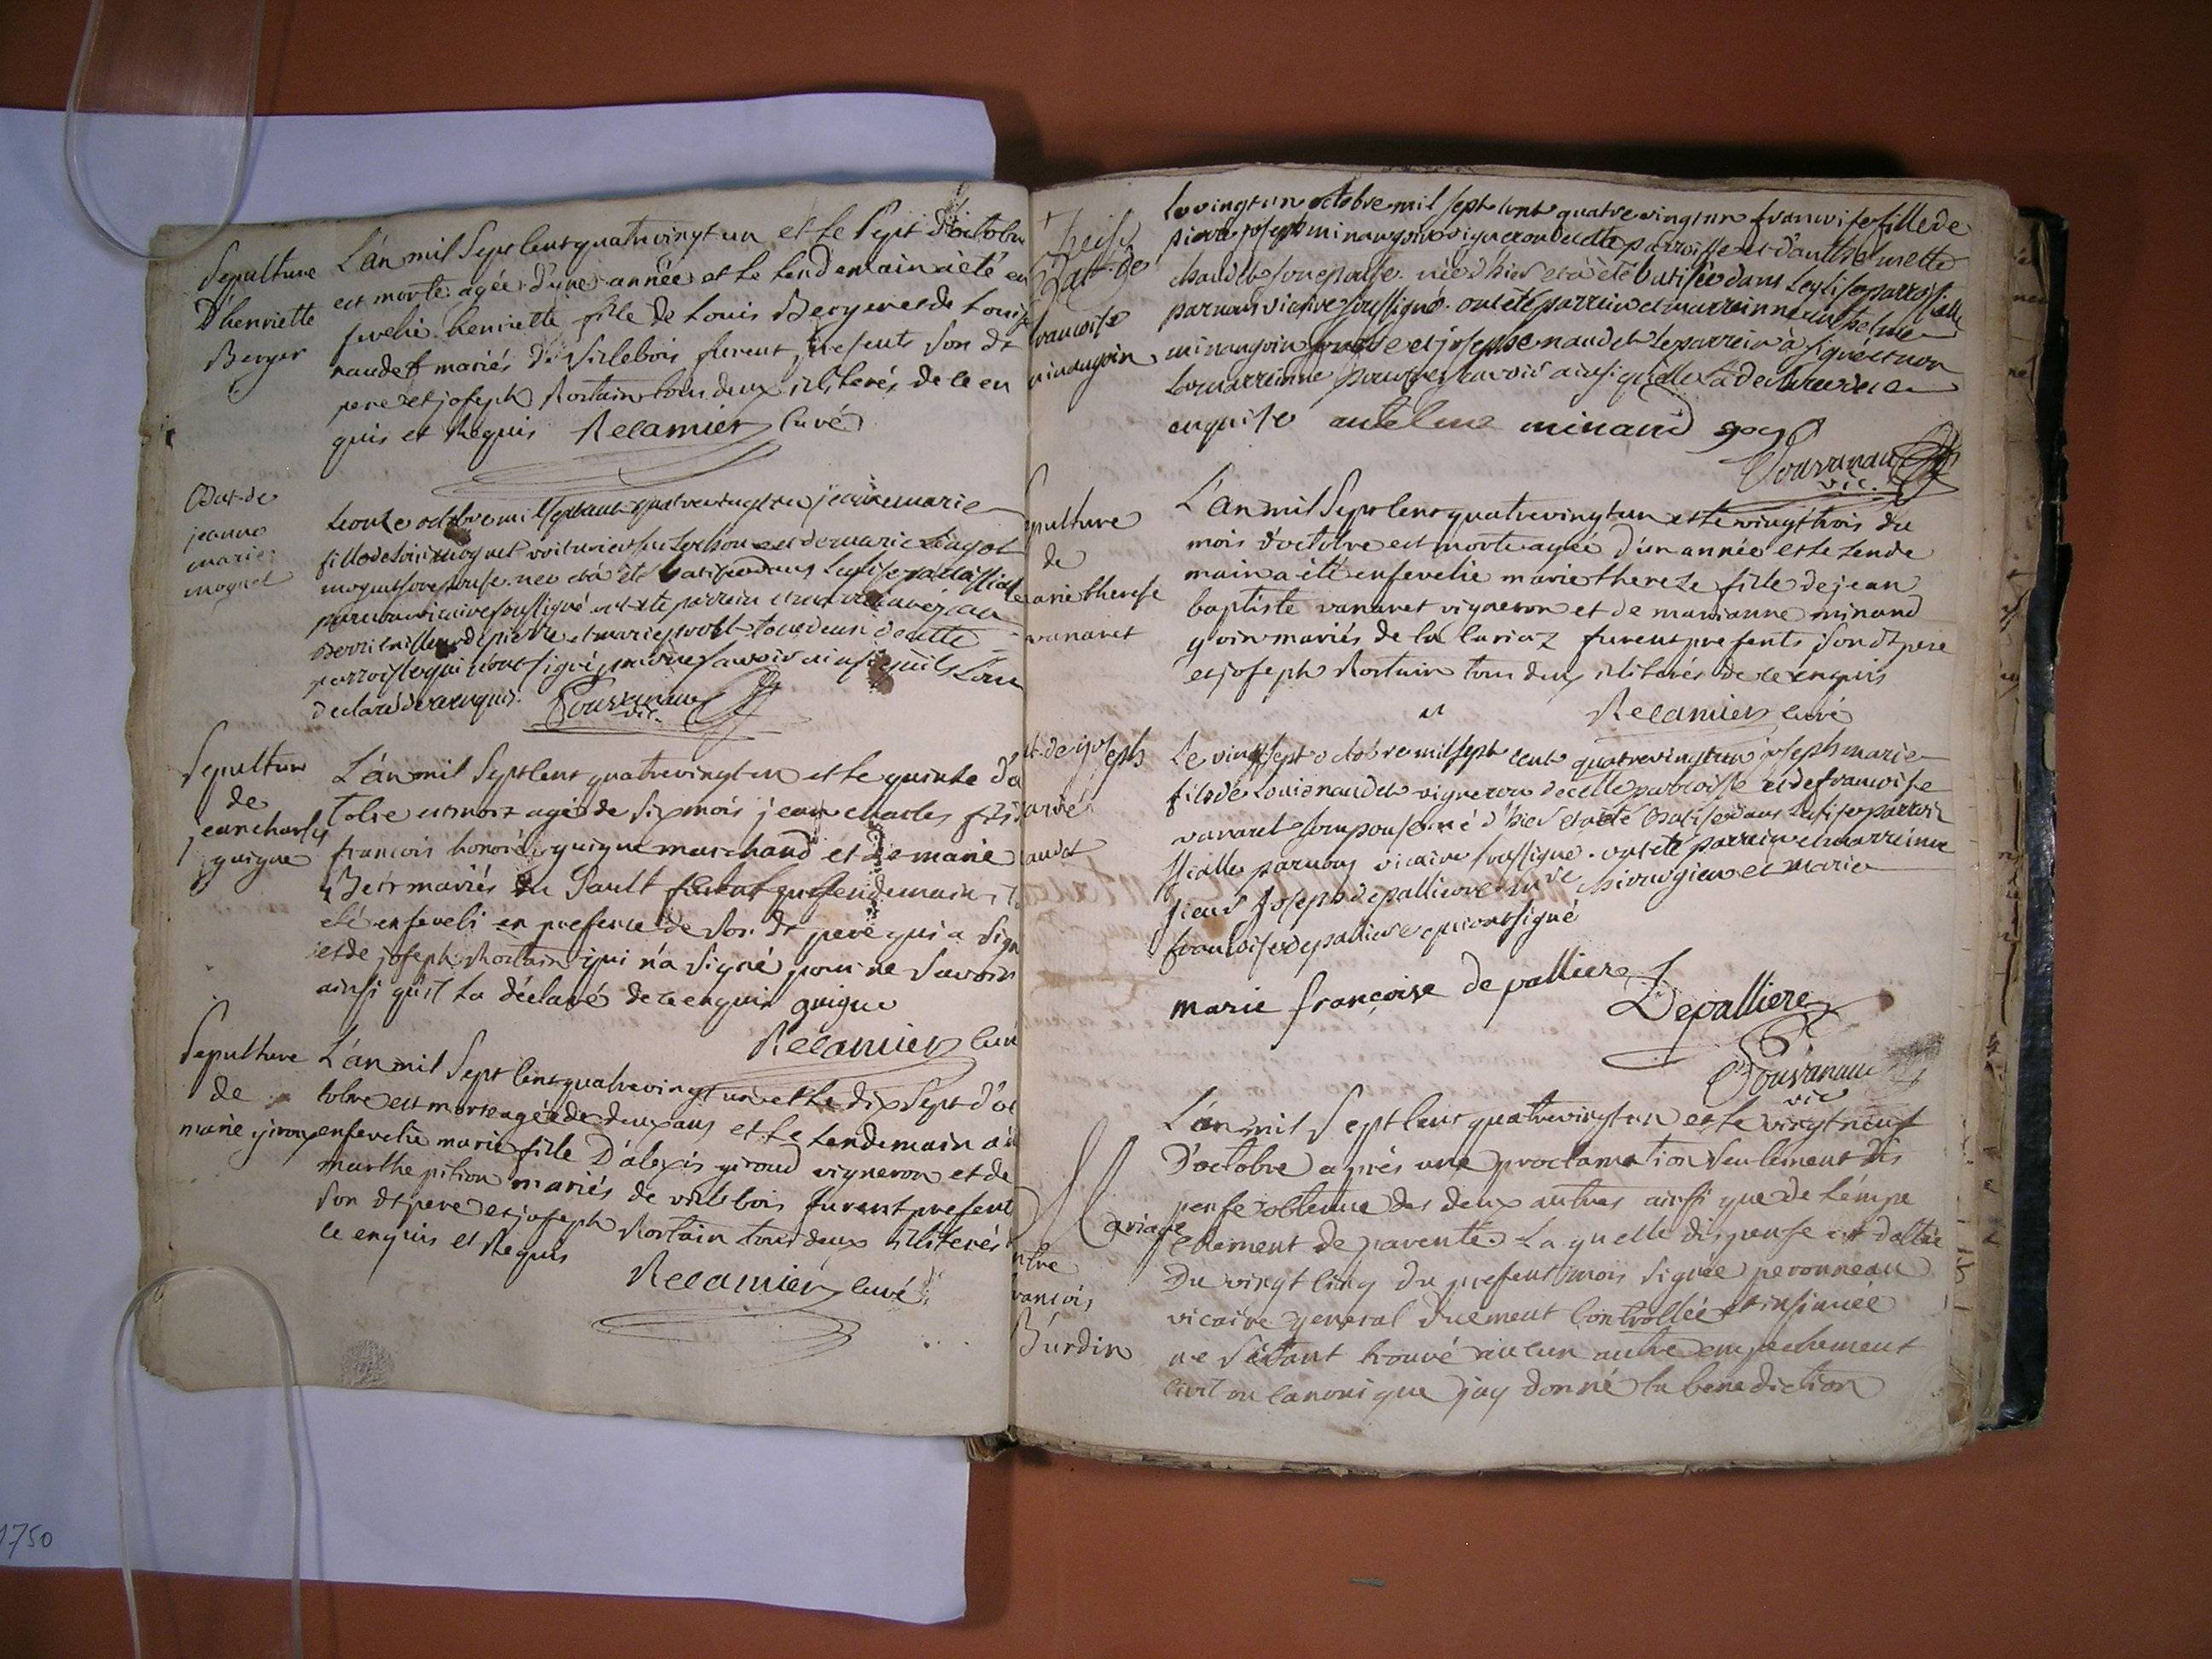 Sepulture
D'henriette
Berger
L'an mil Sept Cent quatrevingt un et le Sept d'octobre
est morte agée d'une année et le lendemain a été en
sevelie henriette fille de Louis Berger et de Louise
naudet mariés de furent presents son dt
pere et joseph Rortain tous deux illiterés de ce en
quis et Requis Recamier Curé
Bat. de
jeanne
marie
moguet
Le onze octobre mil sept cent quatre vingt un jeanne marie
fille de Loüis moguet voiturier et de marie
moguet son epouse. nee et à été batisée dans L'eglise parroissiale
par nous vicaire soussigné ont été parrein et
de pierre et marie tous deux de cette
parroisse qui n'ont signé pour ne savoir ainsi qu'ils L'ont
declaré de ce enquis.
vic.
Sepulture
de
jean charles
guigue
L'an mil Sept Cent quatrevingt un et le quinze d'oc
tobre est mort agé de six mois jean charles fils d
francois honoré guigue marchand et de marie
mariés du Sault lendemain
eté enseveli en presence de son dt pere qui a signé
et de joseph Rortain qui n'a signé pour ne savoir
ainsi qu'il la déclaré de ce enquis guigue
Recamier Curé
Sepulture
de
marie giroux
L'an mil Sept Cent quatrevingt un et le dix Sept d'oc
tobre est morte agée de deux ans et le lendemain a été
ensevelie marie fille D'alexis giroud vigneron et de
marthe pition mariés de furent present
son dt pere et joseph Rortain tous deux illiterés
ce enquis et Requis
Recamier Curé
Bat. de
francoise
minangoin
Le vingt un octobre mil sept cent quatre vingt un francoise fille de
pierre joseph minangoin vigneron de cette parroisse et d'anthelmette
son epouse. née d'hier et à été batisée dans L'eglise parroissialle
par nous vicaire soussigné. ont été parrein et marreinne anthelme
minangoin et josephe naudet le parrein à signé et non
la marreinne pour ne savoir ainsi qu'elle L'a declaré de ce
enquise antelme minand goy
vic.
Sepulture
de
marie therese
vanaret
L'an mil Sept Cent quatrevingt un et le vingt trois du
mois d'octobre est morte agée d'un année et le lende
main a été ensevelie marie thereze fille de jean
baptiste vanaret vigneron et de marianne minand
goin mariés de la furent presents son dt pere
et joseph Rortain tous deux illiterés de ce enquis
Recamier Curé
Bat. de joseph
marie
naudet
Le vingt sept octobre mil sept cent quatrevingt un joseph marie
fils de Louis naudet vigneron de cette parroisse et de francoise
vanaret son epouse. né d'hier et a été batisé dans L'eglise parrois
sialle par nous vicaire soussigné. ont été parrein et marreinne
sieur joseph depalliere chirurgien et marie
francoise depalliere qui ont signé
marie françoise de palliere
Depalliere
vic
Mariage
entre
francois
Burdin
L'an mil Sept Cent quatrevingt un et le vingt neuf
D'octobre aprés une proclamation Seulement dis
pense obtenue des deux autres ainsi que de L'empe
chement de parenté. La quelle dispense est dattée
Du vingt Cinq du present mois signée peronneau
vicaire general duement Controllée et insinuée
ne s'étant trouvé aucun autre empechement
Civil ou Canonique jay donné la benediction
1750